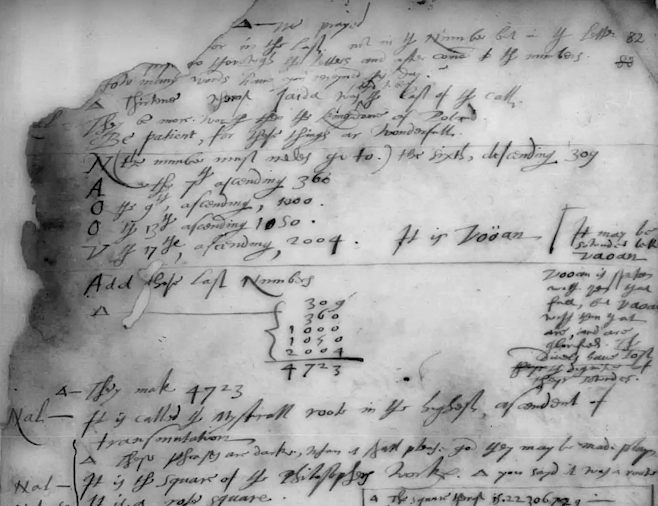 Δ — We prayed
for in the last, not in the Number but in the letter 82
the letters and after come to the numbers.
words have you received this day.
Δ Thirtene, whereof Iaida was the last of the call.
They be more worth then the kingdome of Poland.
Be patient, for these things ar wonderfull.
N (the number must nedes go to.) the sixth, descending 309
A — The 7th ascending 360
O The 9th ascending, 1000.
O The 13th ascending 1050.
V The 17th, ascending, 2004. It is Vooan
It may be
sounded both
Vaoan
Vooan is spoken
with them that
fall, but Vaoan
with them that
are, and are
glorified. The
Divels have lost
the dignity of
theyr sounds.
Add those last Numbers
Δ
309
360
1000
1050
2004
4723
Δ — They mak 4723
Nal — It is called the Mysticall roote in the highest, ascendent of
transmutation
Δ These phrases are darke, when it shall please god they may be made playn
Nal — It is the square of the Philosophers Work. Δ you sayd it was a roote
It is a rote square.
Δ The square therof is. 22306729